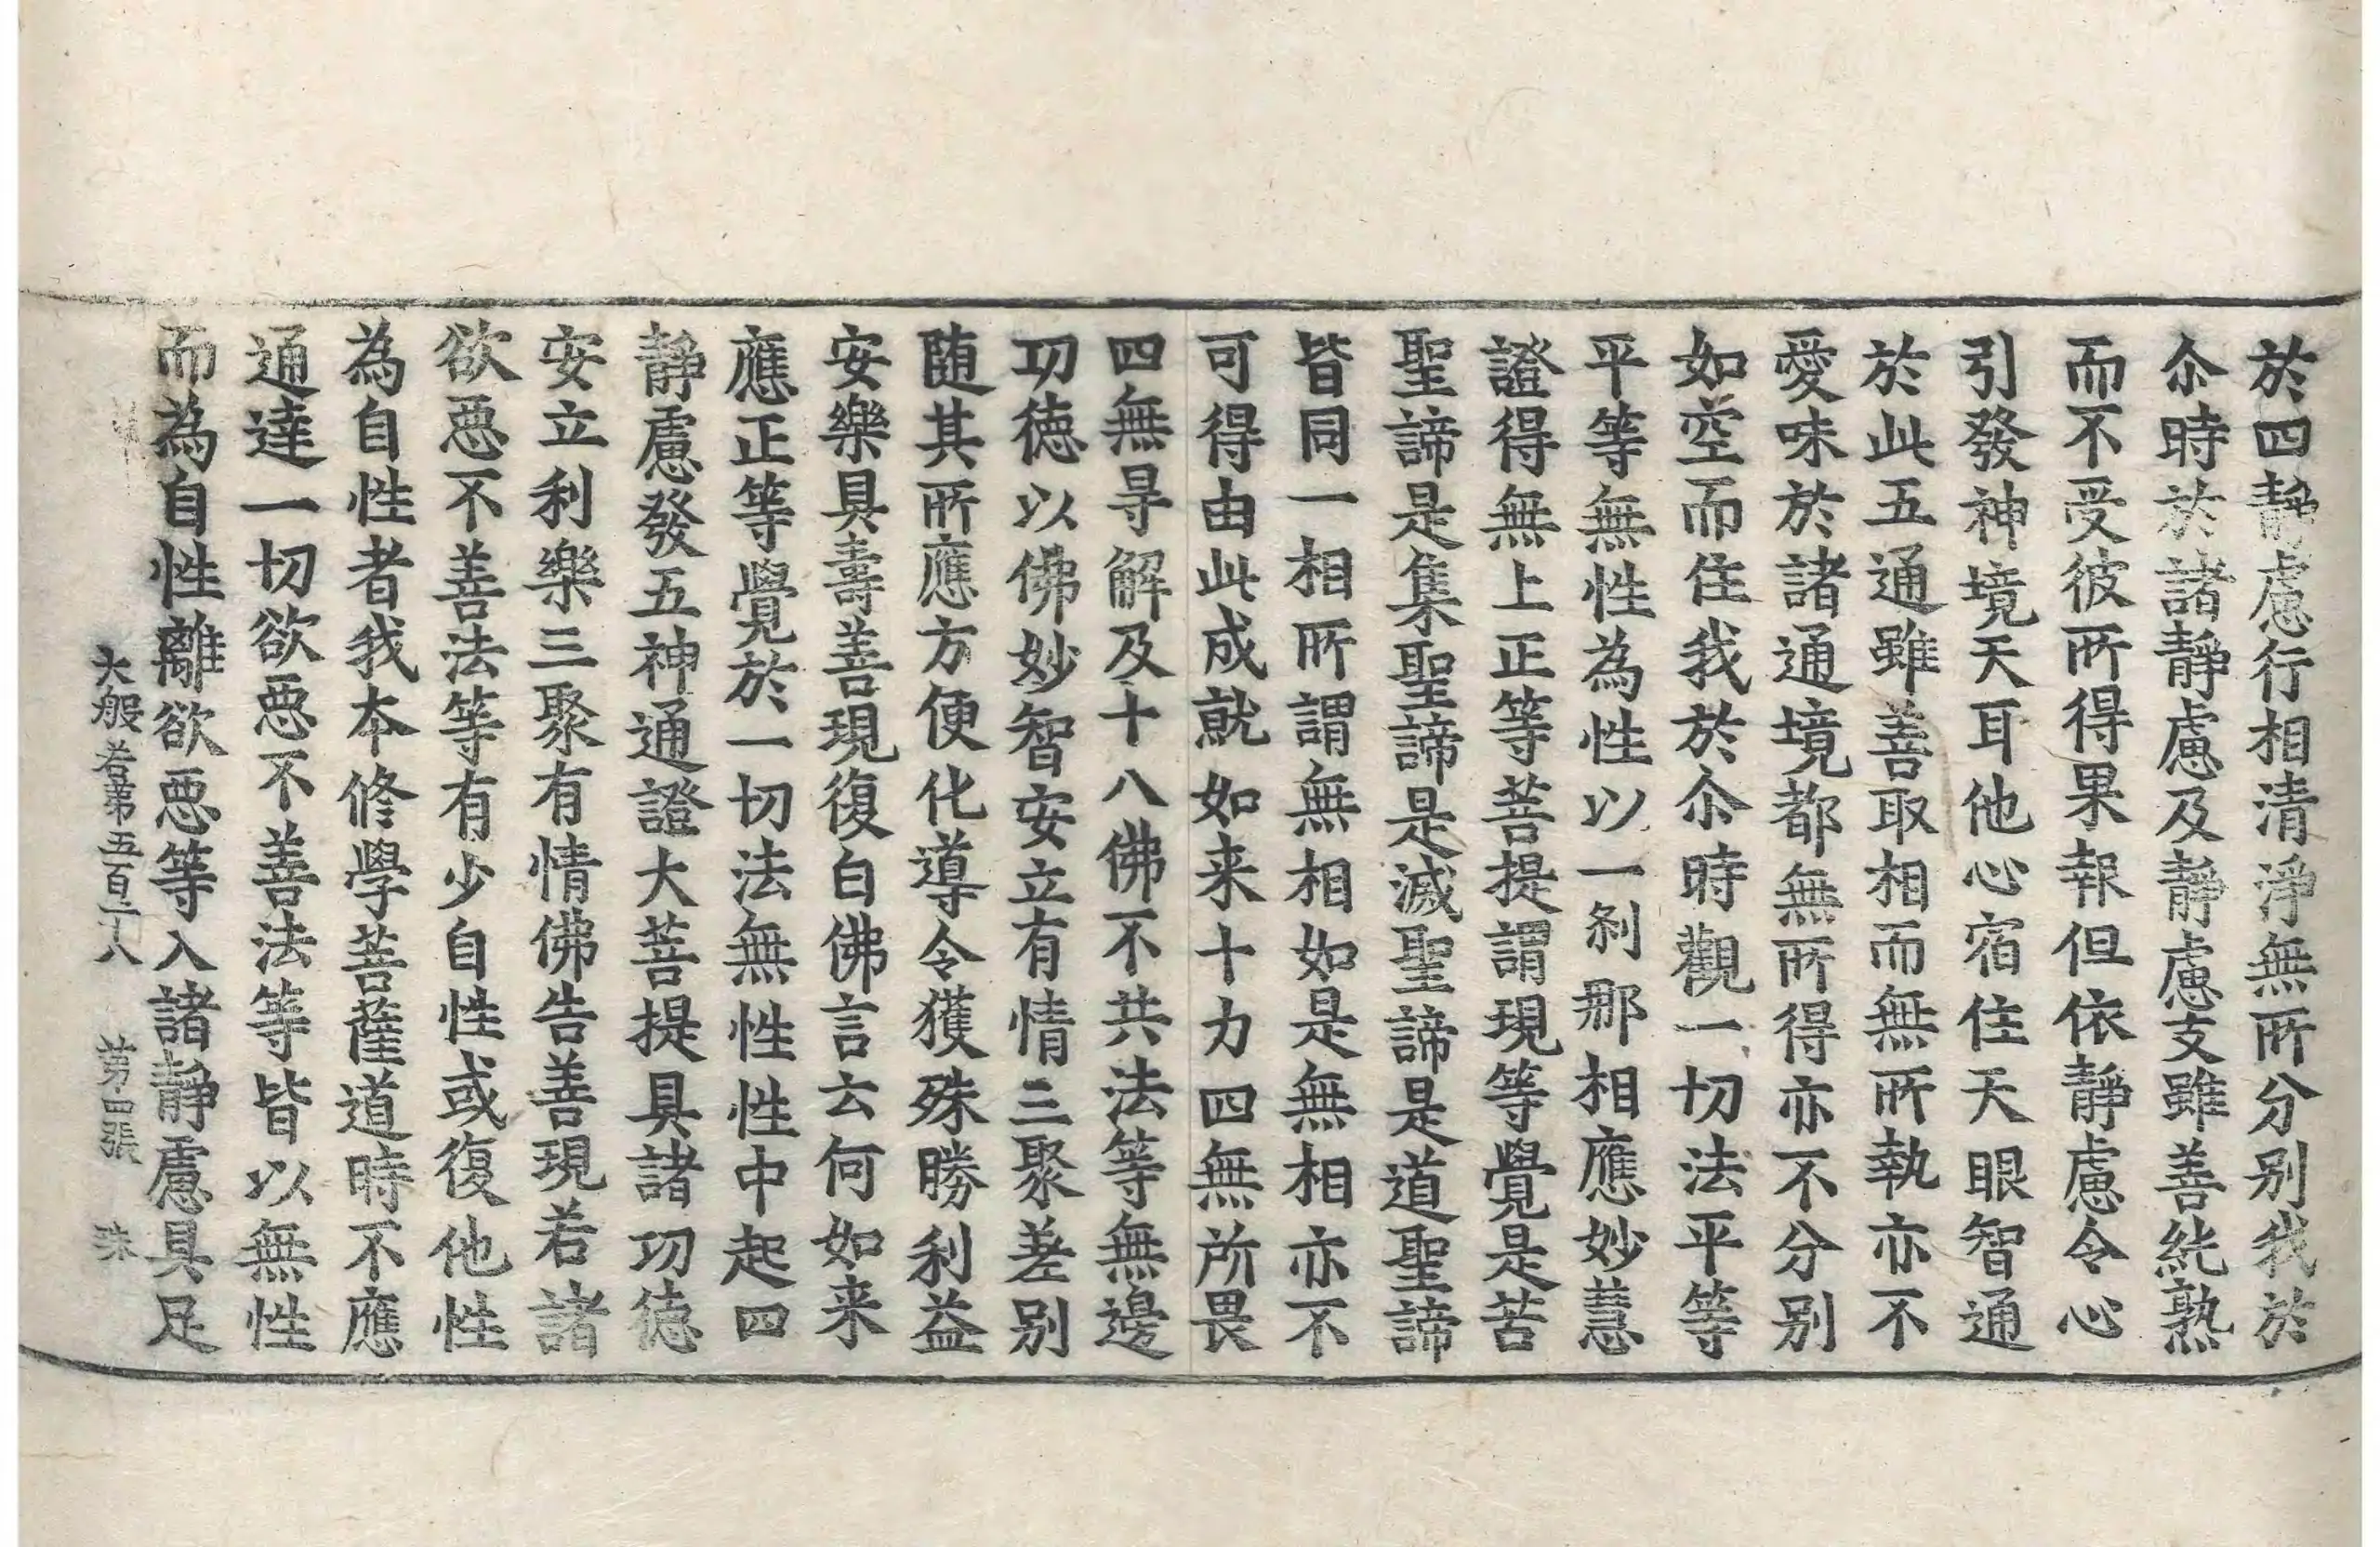 於四靜慮行相清淨無所分別我於
尒時於諸靜慮及靜慮支雖善純熟
而不受彼所得果報但依靜慮令心
引發神境天耳他心宿住天眼智通
於此五通雖善取相而無所執亦不
愛味於諸通境都無所得亦不分別
如空而住我於尒時觀一切法平等
平等無性為性以一剎那相應妙慧
證得無上正等菩提謂現等覺是苦
聖諦是集聖諦是滅聖諦是道聖諦
皆同一相所謂無相如是無相亦不
可得由此成就如来十力四無所畏
四無㝵解及十八佛不共法等無邊
功德以佛妙智安立有情三聚差別
隨其所應方便化導令獲殊勝利益
安樂具壽善現復白佛言云何如来
應正等覺於一切法無性性中起四
靜慮發五神通證大菩提具諸功德
安立利樂三聚有情佛告善現若諸
欲惡不善法等有少自性或復他性
為自性者我本修學菩薩道時不應
通達一切欲惡不善法等皆以無性
而為自性離欲惡等入諸靜慮具足
大般若第五百二十八 第四張 珠